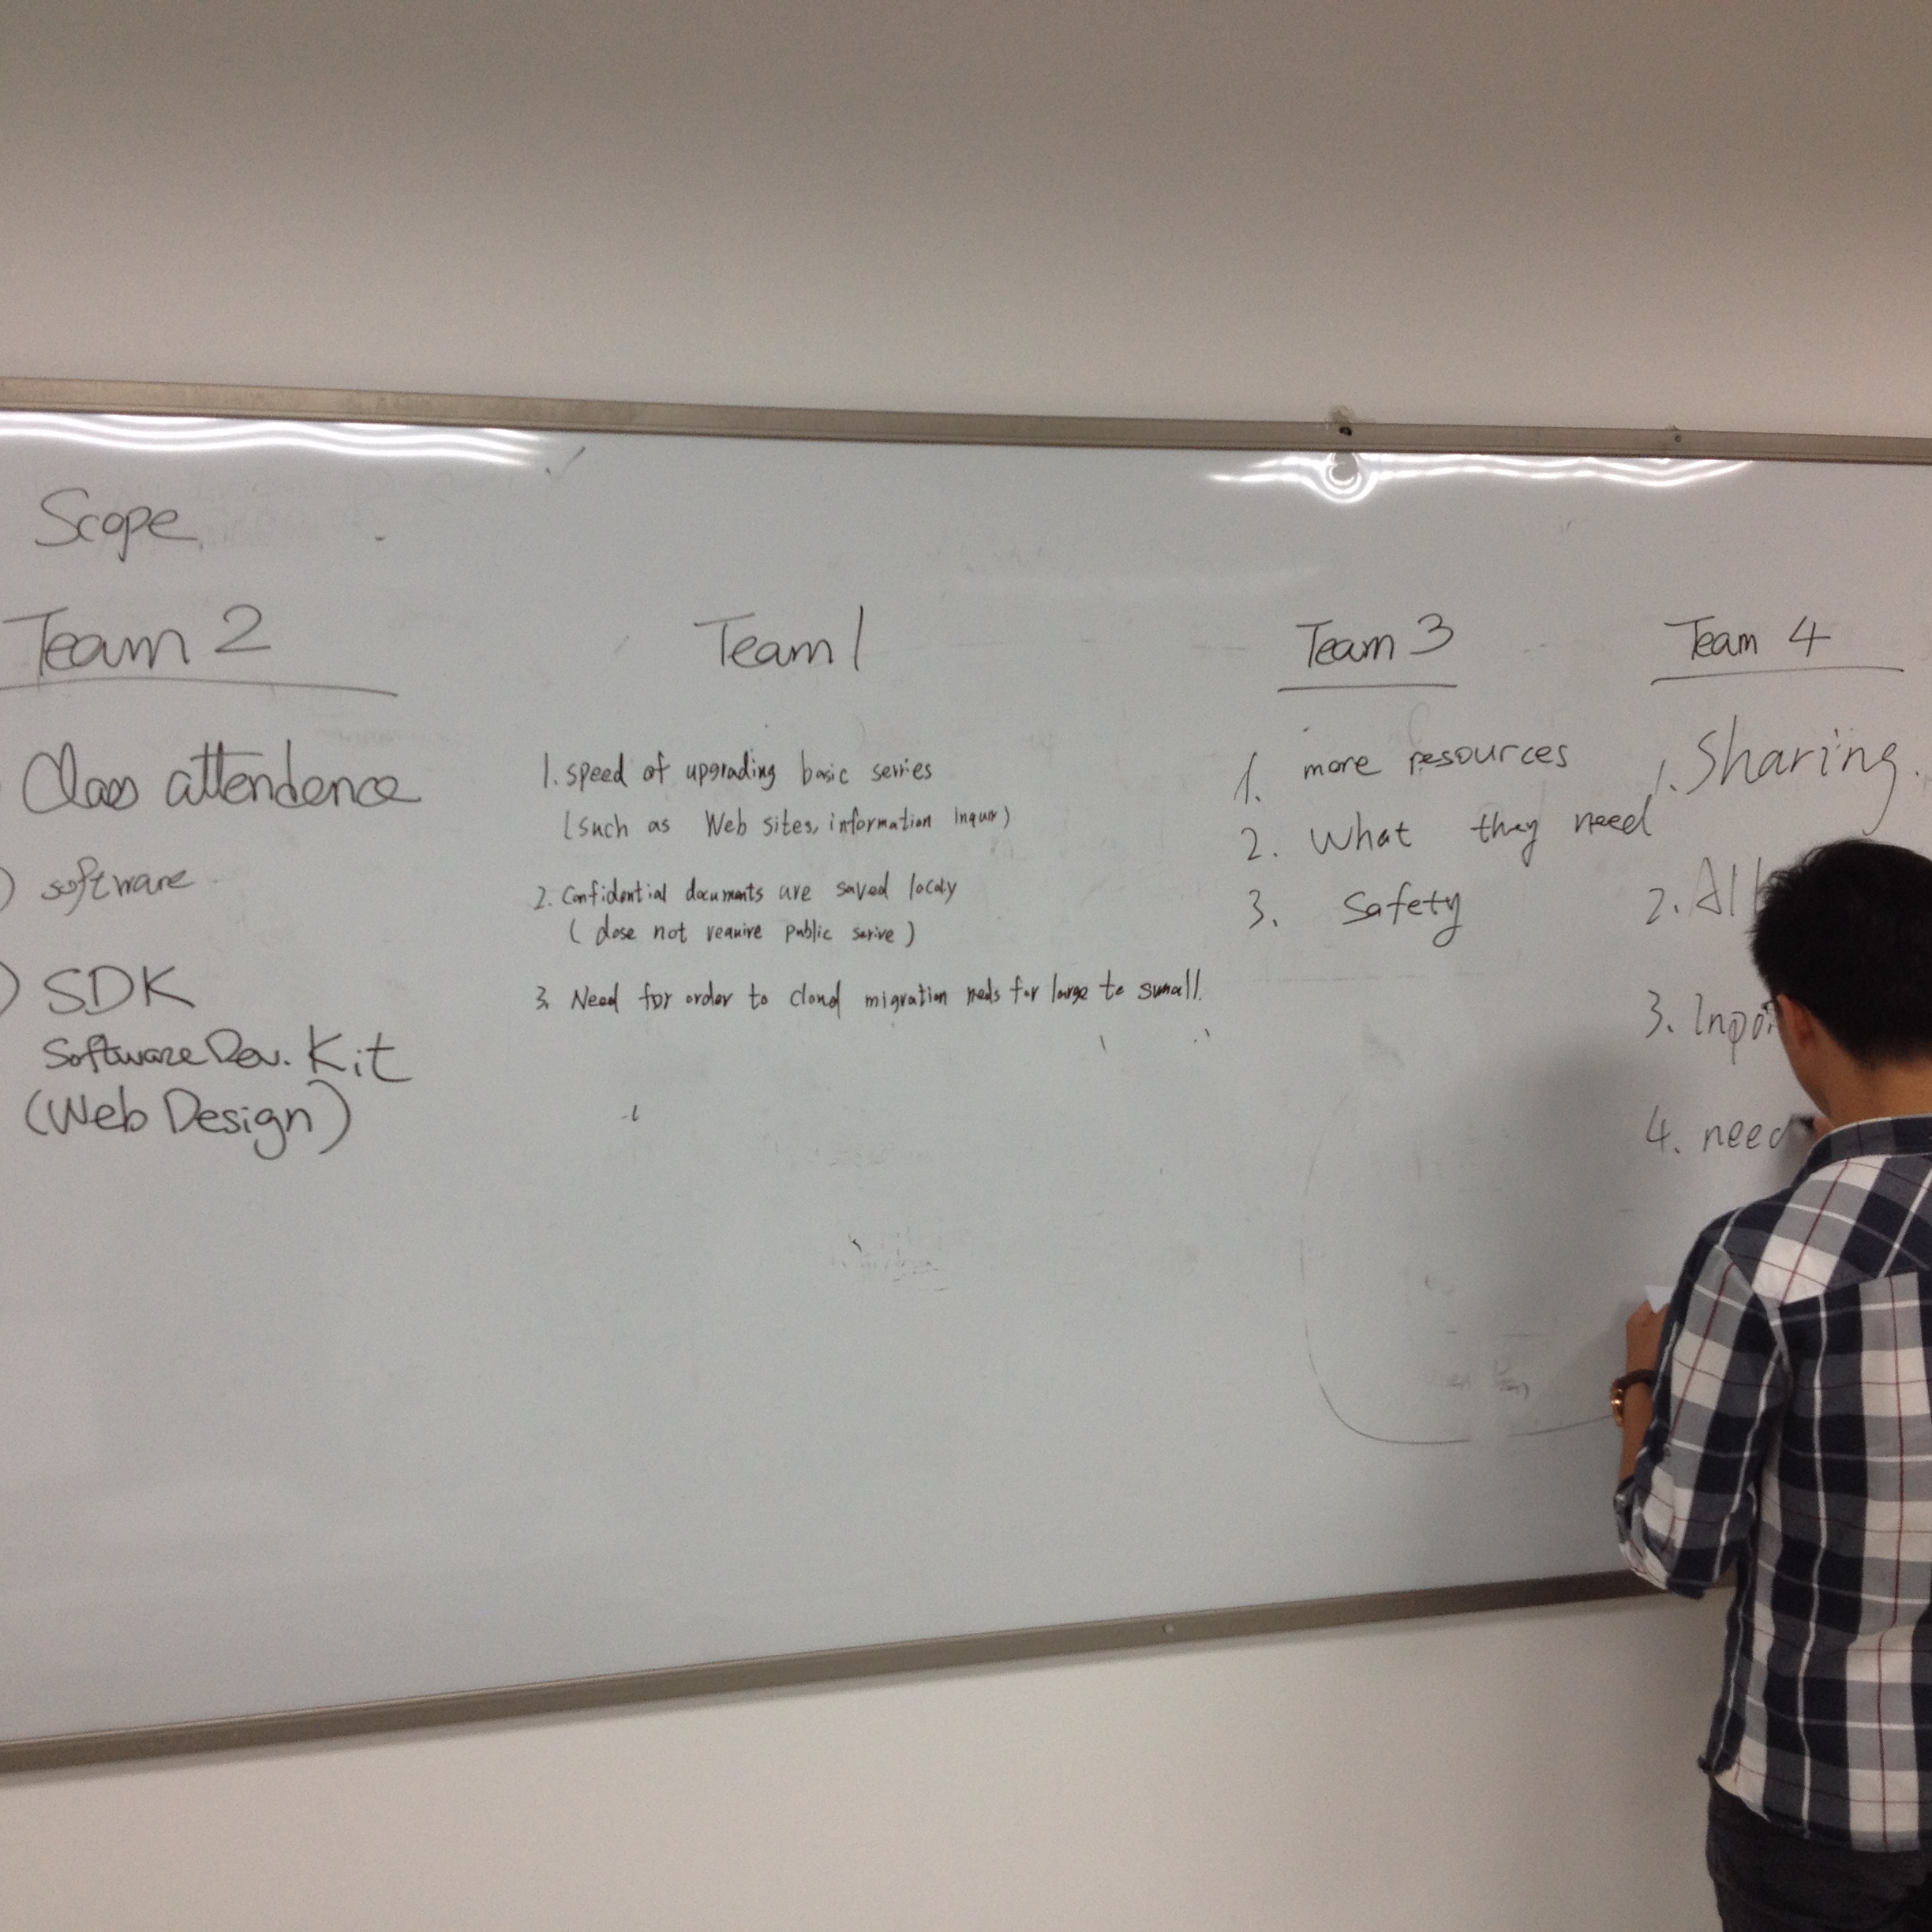 Scope
Team 2
Class attendence
) software
) SDK
Software Dev. Kit
(Web Design)
Team 1
1. speed of upgrading basic series
(such as Web sites, information
2. Confidential documents are saved localy
( dose not require public serive )
3. Need for order to cloud migration needs for large to small.
Team 3
1. more resources
2. What they need
3. Safety
Team 4
1. Sharing.
2.
3.
4. need